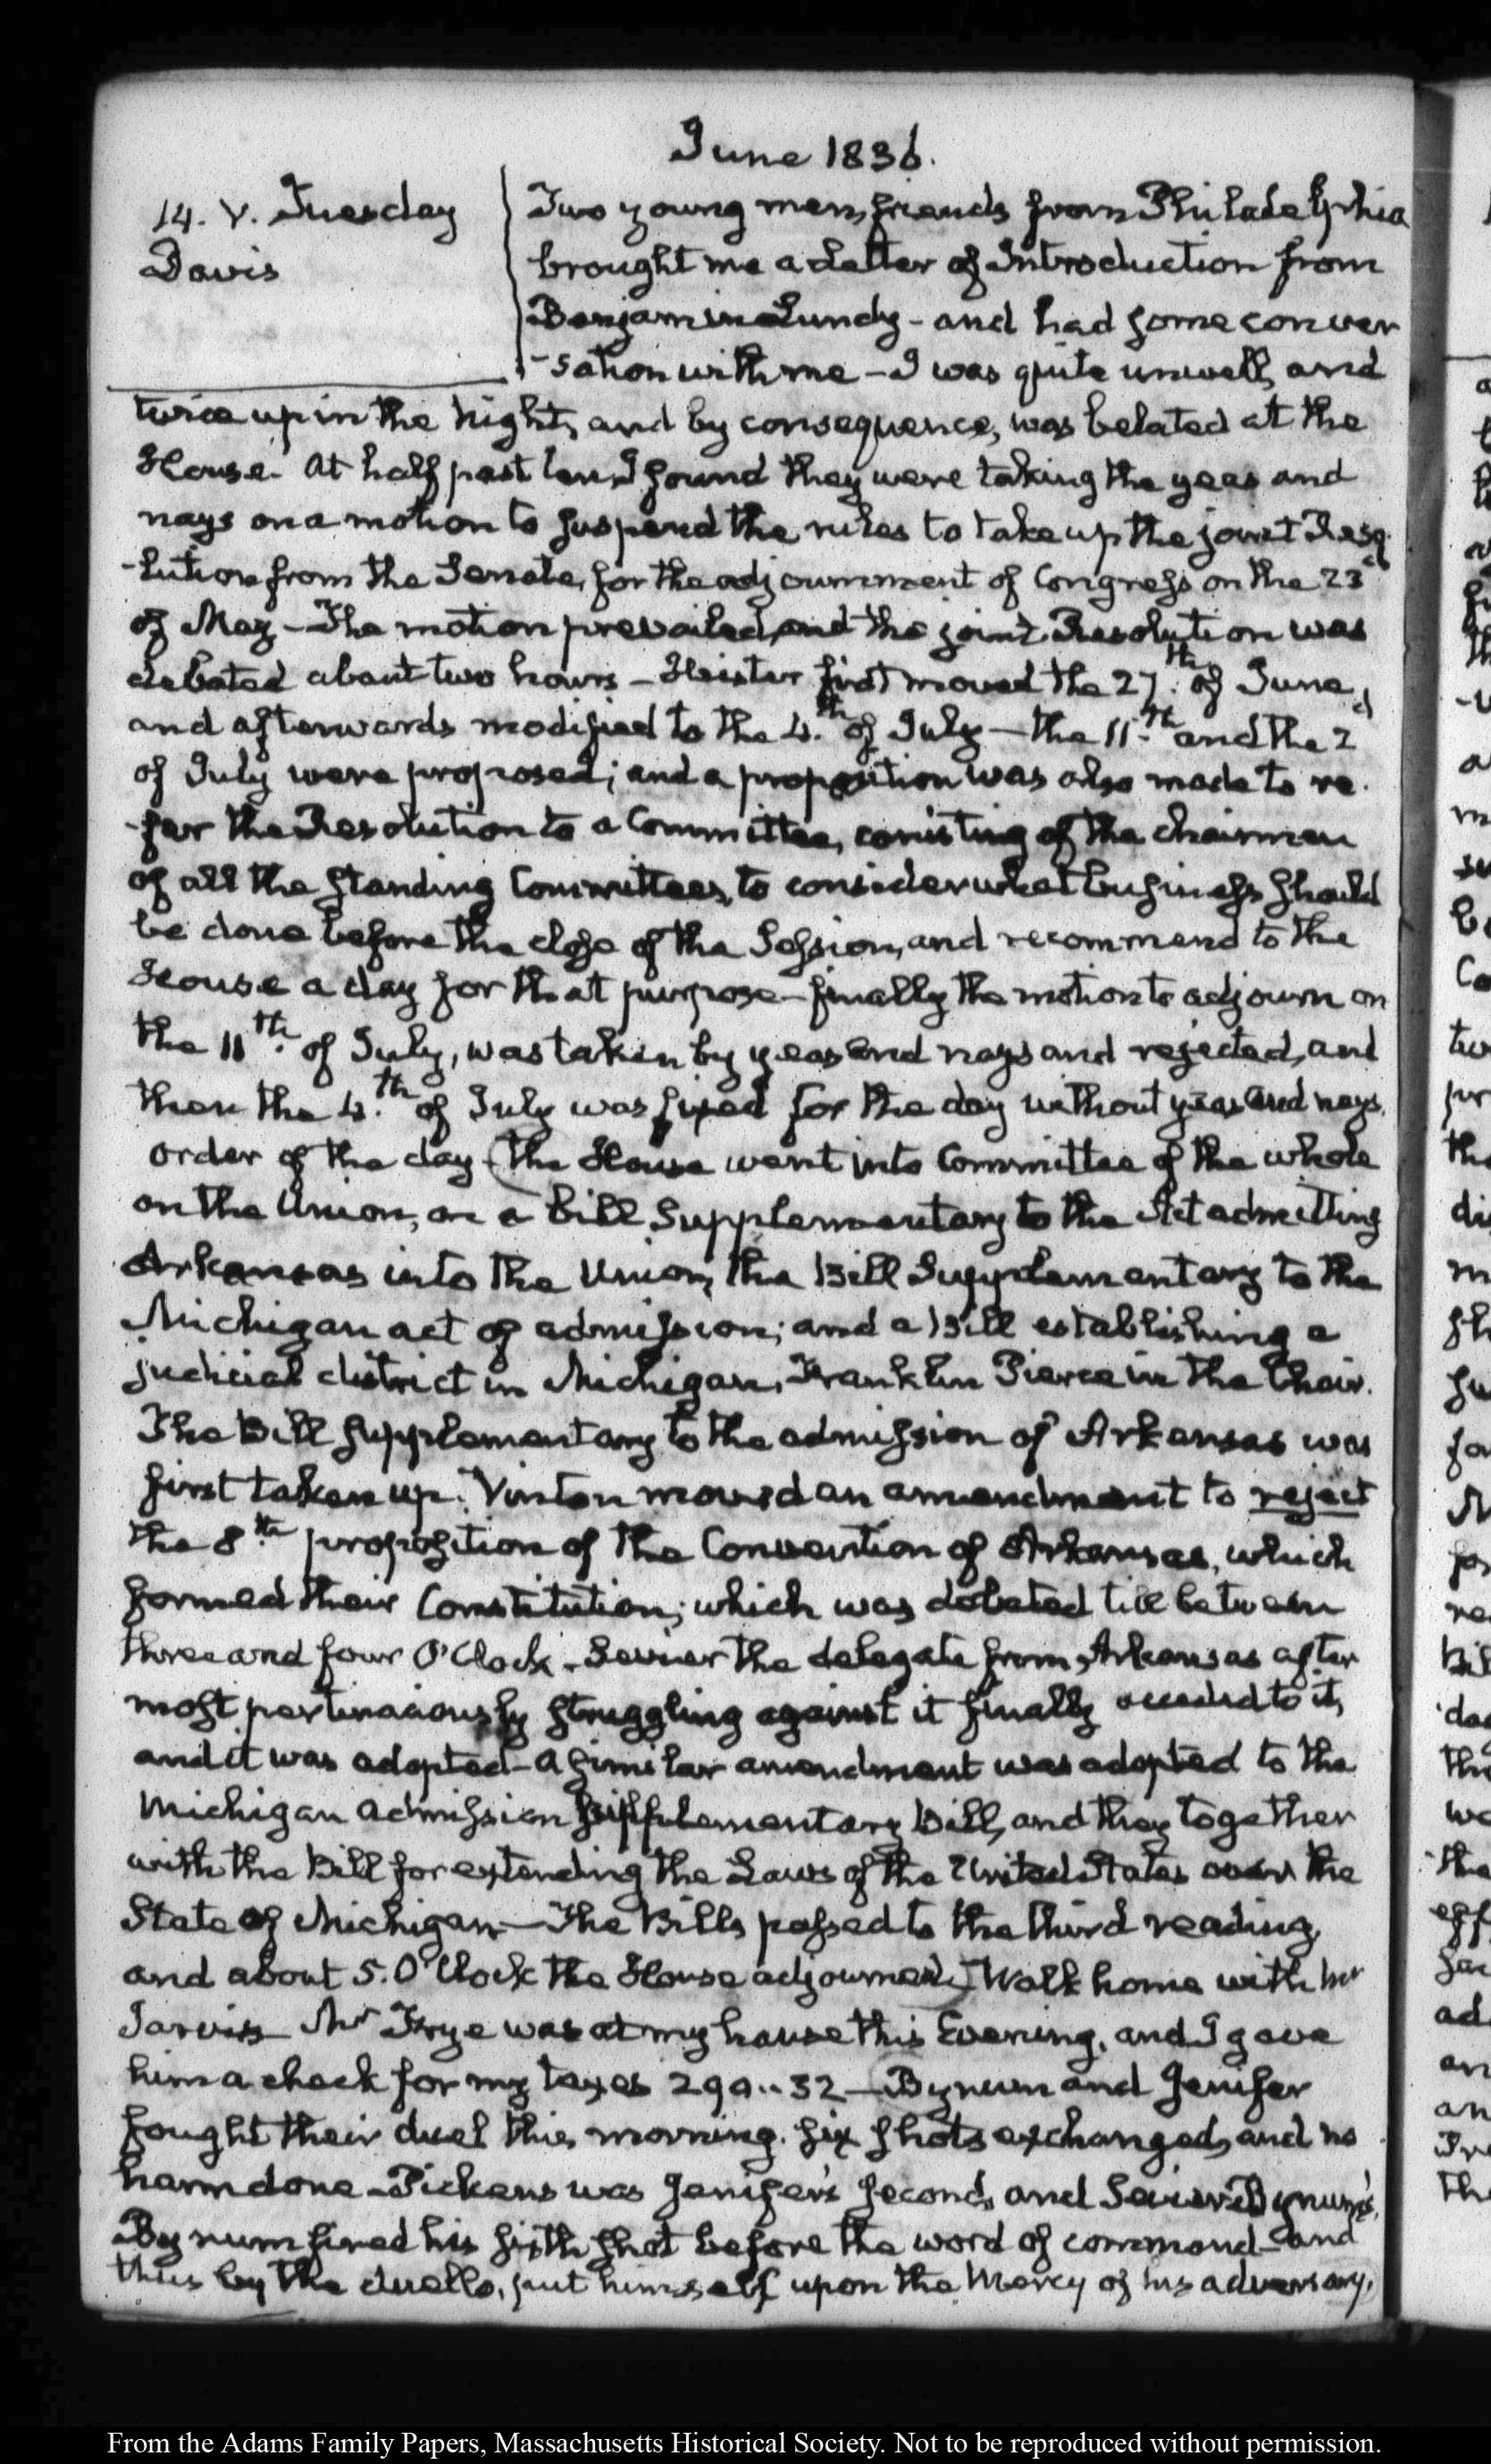 June 1836.
14. V. Tuesday
Davis
Two young men, friends from Philadelphia
brought me a Letter of Introduction from
Benjamin Lundy - and had some conver
-sation with me - I was quite unwell, and
twice up in the Night, and by consequence, was belated at the
House. At half past ten, I found they were taking the yeas and
nays on a motion to suspend the rules to take up the joint Reso
-lution from the Senate, for the adjournment of Congress on the 23d
of May - The motion prevailed, and the joint Resolution was
debated about two hours - Heister first moved the 27.th of June,
and afterwards modified to the 4.th of July - the 11.th and the 2d
of July were proposed; and a proposition was also made to re-
-fer the Resolution to a Committee, consisting of the chairmen
of all the standing Committees, to consider what business should
be done before the close of the Session, and recommend to the
House a day for that purpose - finally the motion to adjourn on
the 11th. of July, was taken by yeas and nays and rejected, and
then the 4.th of July was fixed for the day without yeas and nays.
order of the day (The House went into Committee of the whole
on the Union, on a Bill Supplementary to the Act admitting
Arkansas into the Union, the Bill Supplementary to the
Michigan act of admission; and a Bill establishing a
judicial district in Michigan, Franklin Pierce in the Chair.
The Bill supplementary to the admission of Arkansas was
first taken up. Vinton moved an amendment to reject
the 8th proposition of the Convention of Arkansas, which
formed their Constitution; which was debated till between
three and four O'Clock - Sevier the delegate from Arkansas after
most pertinaciously struggling against it finally acceded to it,
and it was adopted - A similar amendment was adopted to the
Michigan admission Supplementary Bill, and they together
with the Bill for extending the Laws of the United States over the
State of Michigan - The Bills passed to the third reading,
and about 5. O'Clock the House adjourned) Walk home with Mr
Jarvis - Mr Frye was at my house this Evening, and I gave
him a check for my taxes 299..32 - Bynum and Jenifer
fought their duel this morning. six shots exchanged, and no
harm done - Pickens was Jenifer's second, and Sevier Bynum's.
Bynum fired his sixth shot before the word of command - and
thus by the duello, put himself upon the Mercy of his adversary,
From the Adams Family Papers, Massachusetts Historical Society. Not to be reproduced without permission.